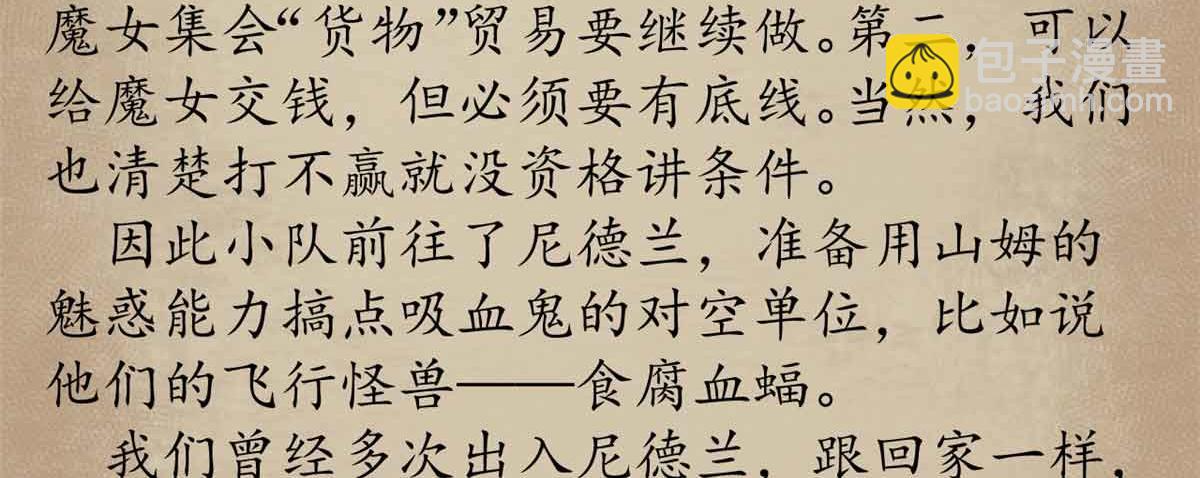 魔女集会“货物”贸易要继续做。第二，可以
给魔女交钱，但必须要有底线。当然，我们
也清楚打不赢就没资格讲条件。
因此小队前往了尼德兰，准备用山姆的
魅惑能力搞点吸血鬼的对空单位，比如说
他们的飞行怪兽——食腐血蝠。
我们曾经多次出入尼德兰，跟回家一样，
包子漫畫
baozimh.com